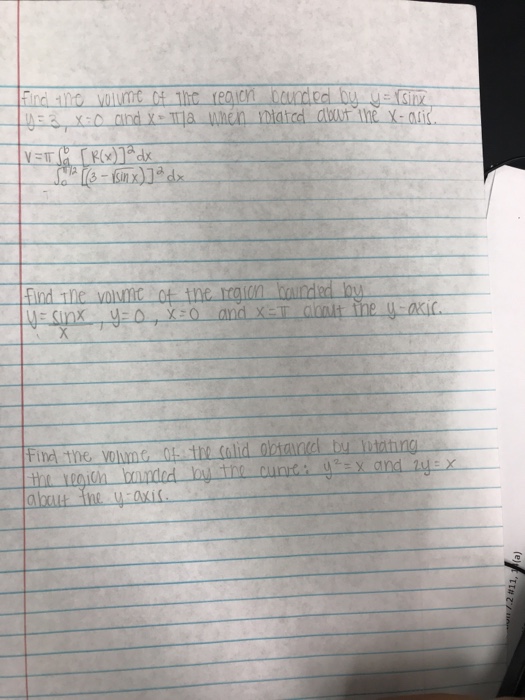 Find the volume of the region bounded by y=√sinx,
y=3, x=0 and x=π/2 when rotated about the x-axis.
V=π∫ₐᵇ [R(x)]²dx
∫₀^π/2 [(3-√sinx)]²dx
Find the volume of the region bounded by
y=sinx/x, y=0, x=0 and x=π about the y-axis.
Find the volume of the solid obtained by rotating
the region bounded by the curve: y²=x and 2y=x
about the y-axis.
7.2 #11, (a)